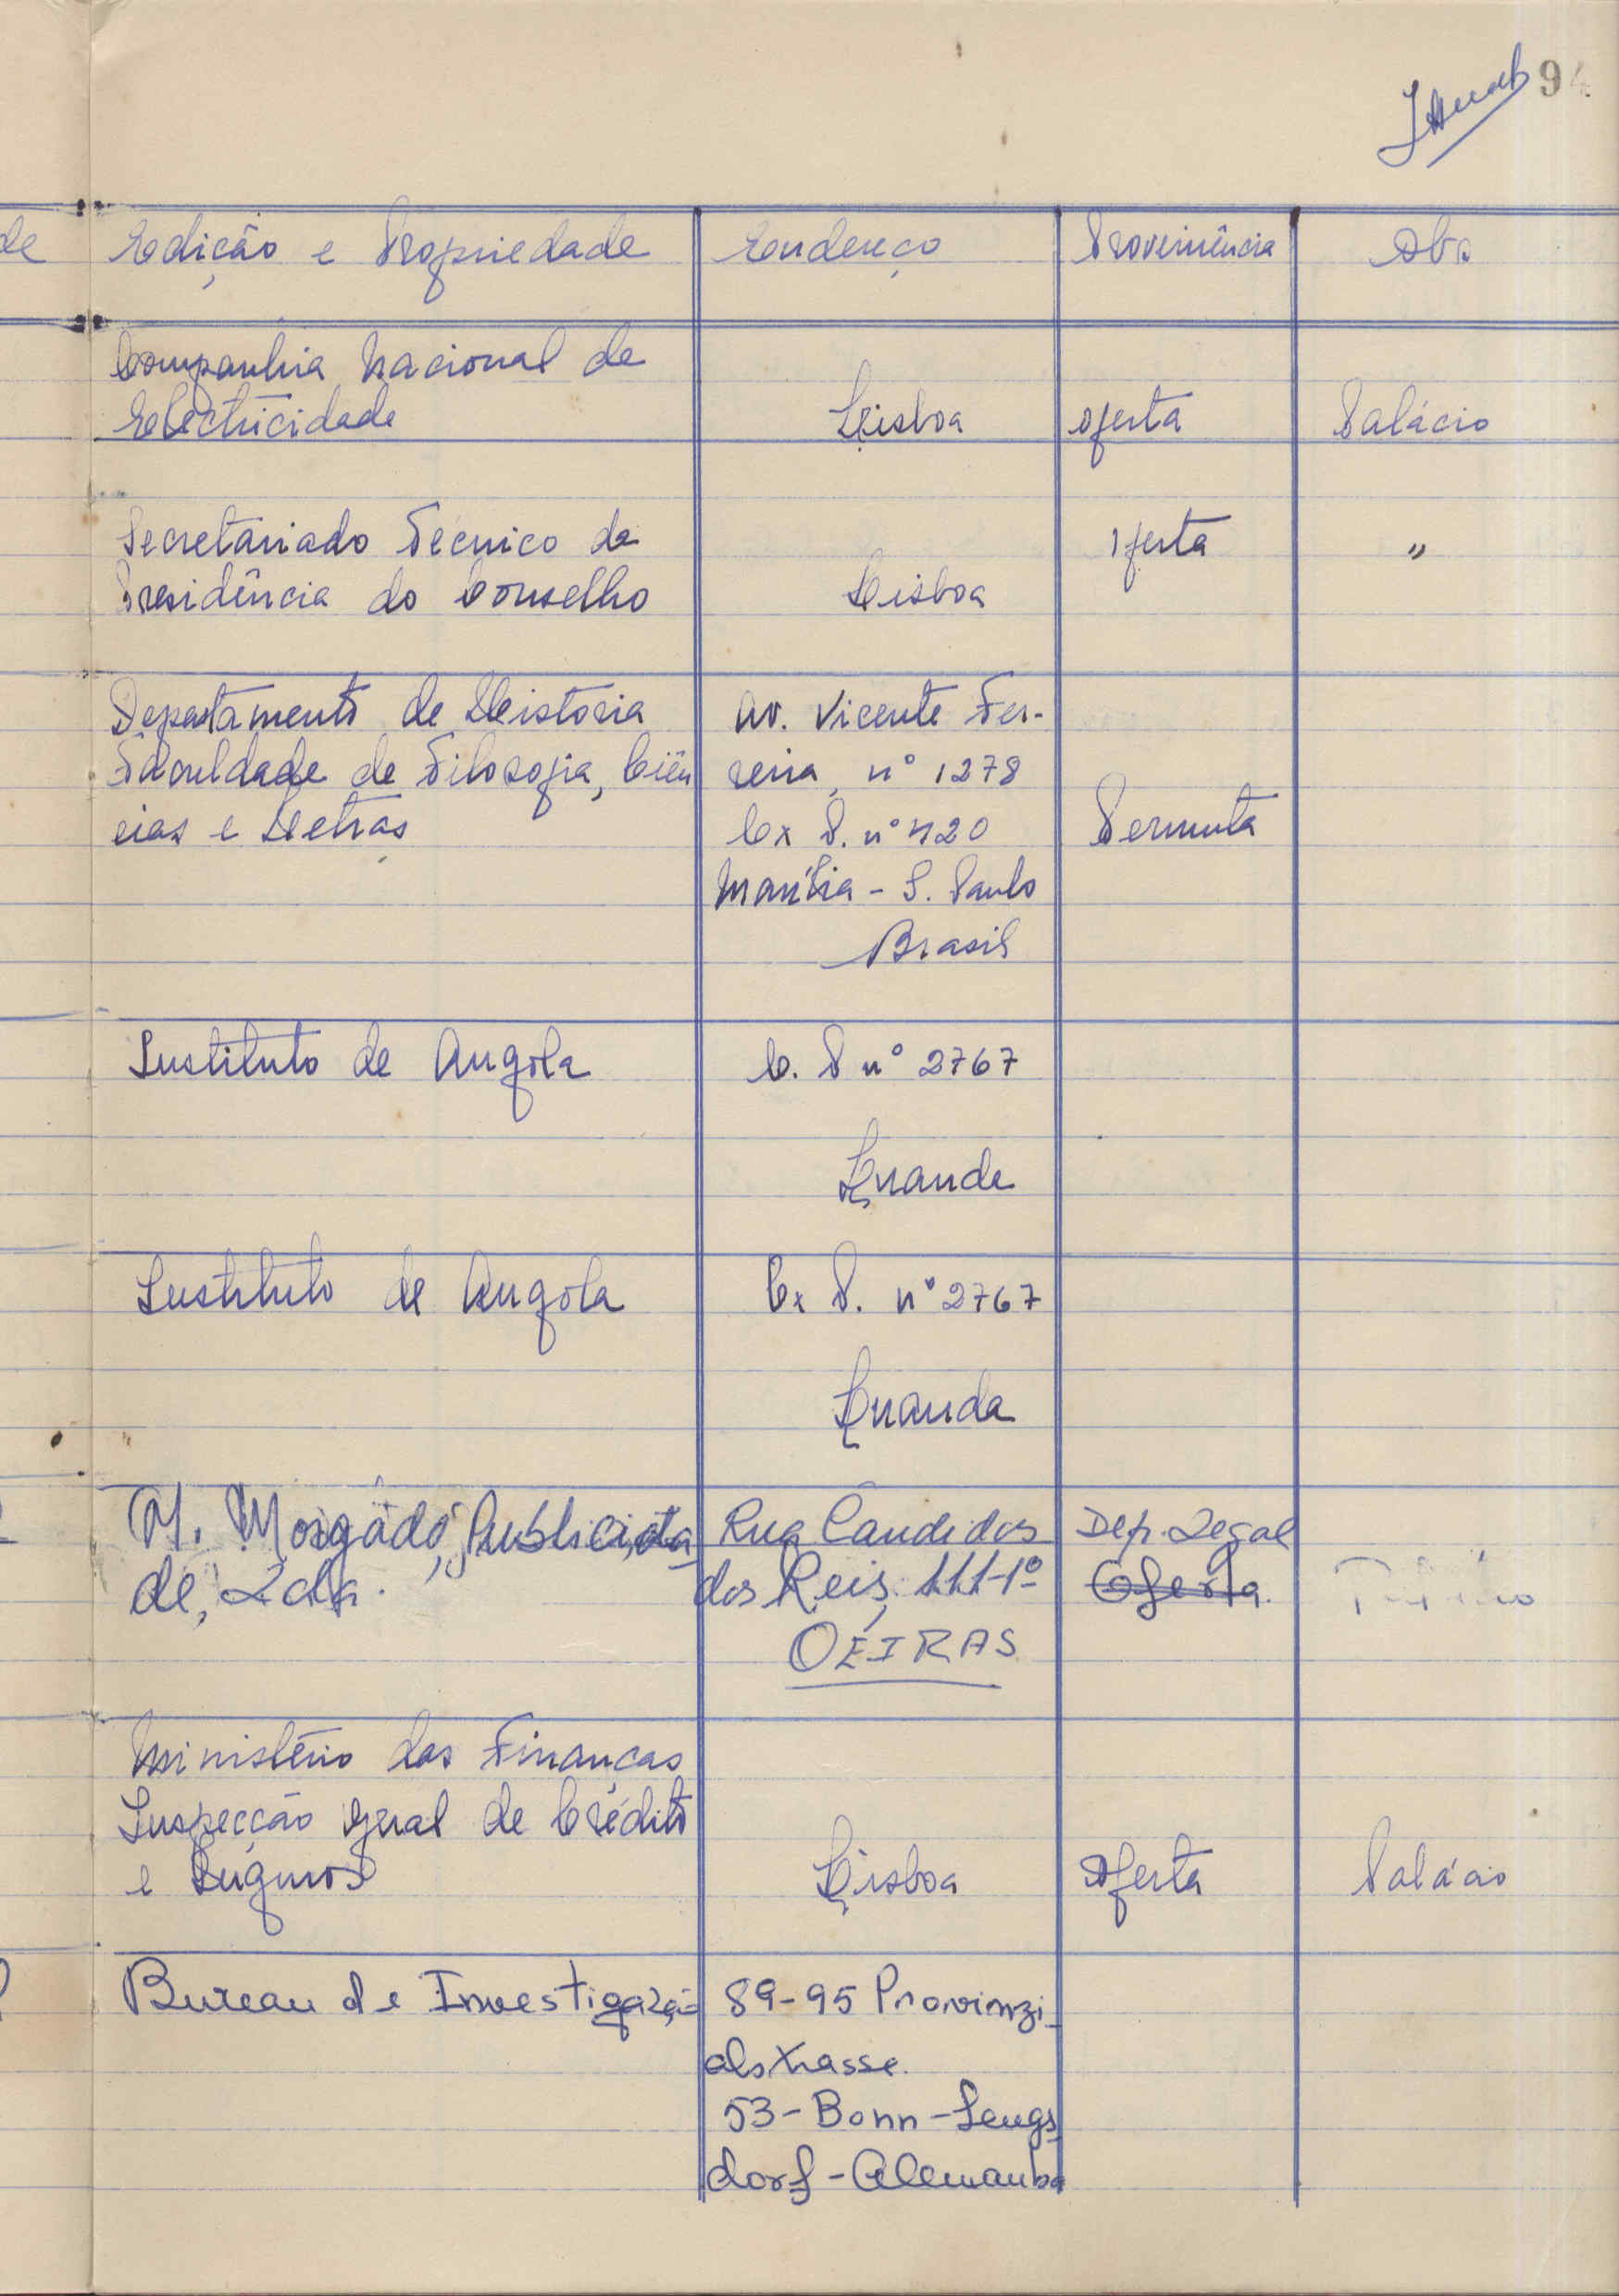 94
de Edição e Propriedade Endereço Proveniência Obs
Companhia Nacional de
Electricidade Lisboa oferta Palácio
Secretariado Técnico da oferta "
Presidência do Conselho Lisboa
Departamento de História Av. Vicente Fer-
Faculdade de Filosofia, Ciên reira, nº 1278
cias e Letras Cx P. nº 420 Permuta
Marília - S. Paulo
Brasil
Instituto de Angola C. P nº 2767
Luanda
Instituto de Angola Cx P. nº 2767
Luanda
M. Morgado, Publicida Rua Cândidos Dep. Legal
de, Lda. dos Reis, 111-1º Oferta.
OEIRAS
Ministério das Finanças
Inspecção geral de Crédito
e Seguros Lisboa Oferta Palácio
Bureau de Investigação 89-95 Provinzi-
alstrasse.
53-Bonn-Lengs-
dorf-Alemanha